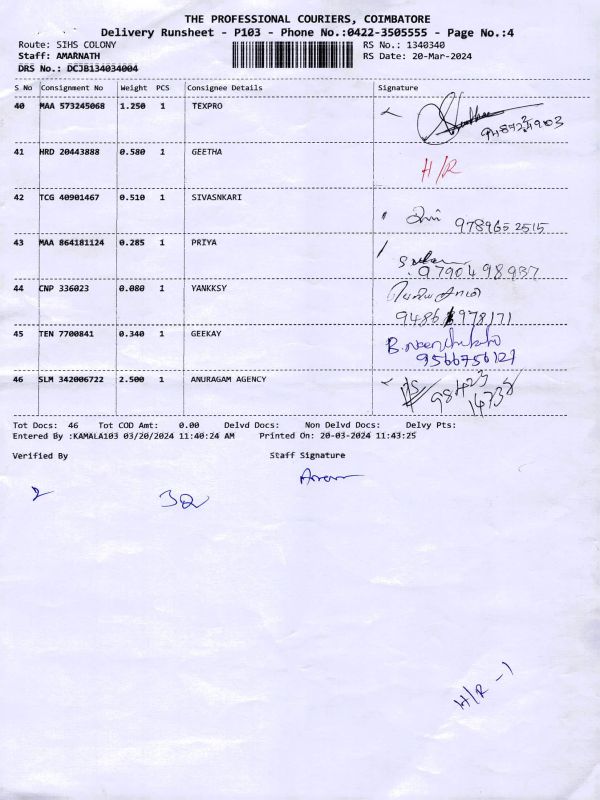 THE PROFESSIONAL COURIERS, COIMBATORE
Delivery Runsheet - P103 - Phone No.:0422-3505555 - Page No.:4
Route: SIHS COLONY RS No.: 1340340
Staff: AMARNATH RS Date: 20-Mar-2024
DRS No.: DCJB134034004
S No Consignment No Weight PCS Consignee Details Signature
40 MAA 573245068 1.250 1 TEXPRO
41 HRD 20443888 0.580 1 GEETHA H/R
42 TCG 40901467 0.510 1 SIVASNKARI 978965 2515
43 MAA 864181124 0.285 1 PRIYA
97904 98937
44 CNP 336023 0.080 1 YANKKSY
45 TEN 7700841 0.340 1 GEEKAY
9566756127
46 SLM 342006722 2.500 1 ANURAGAM AGENCY 98423
14738
Tot Docs: 46 Tot COD Amt: 0.00 Delvd Docs: Non Delvd Docs: Delvy Pts:
Entered By :KAMALA103 03/20/2024 11:40:24 AM Printed On: 20-03-2024 11:43:25
Verified By Staff Signature
2
H/R -1